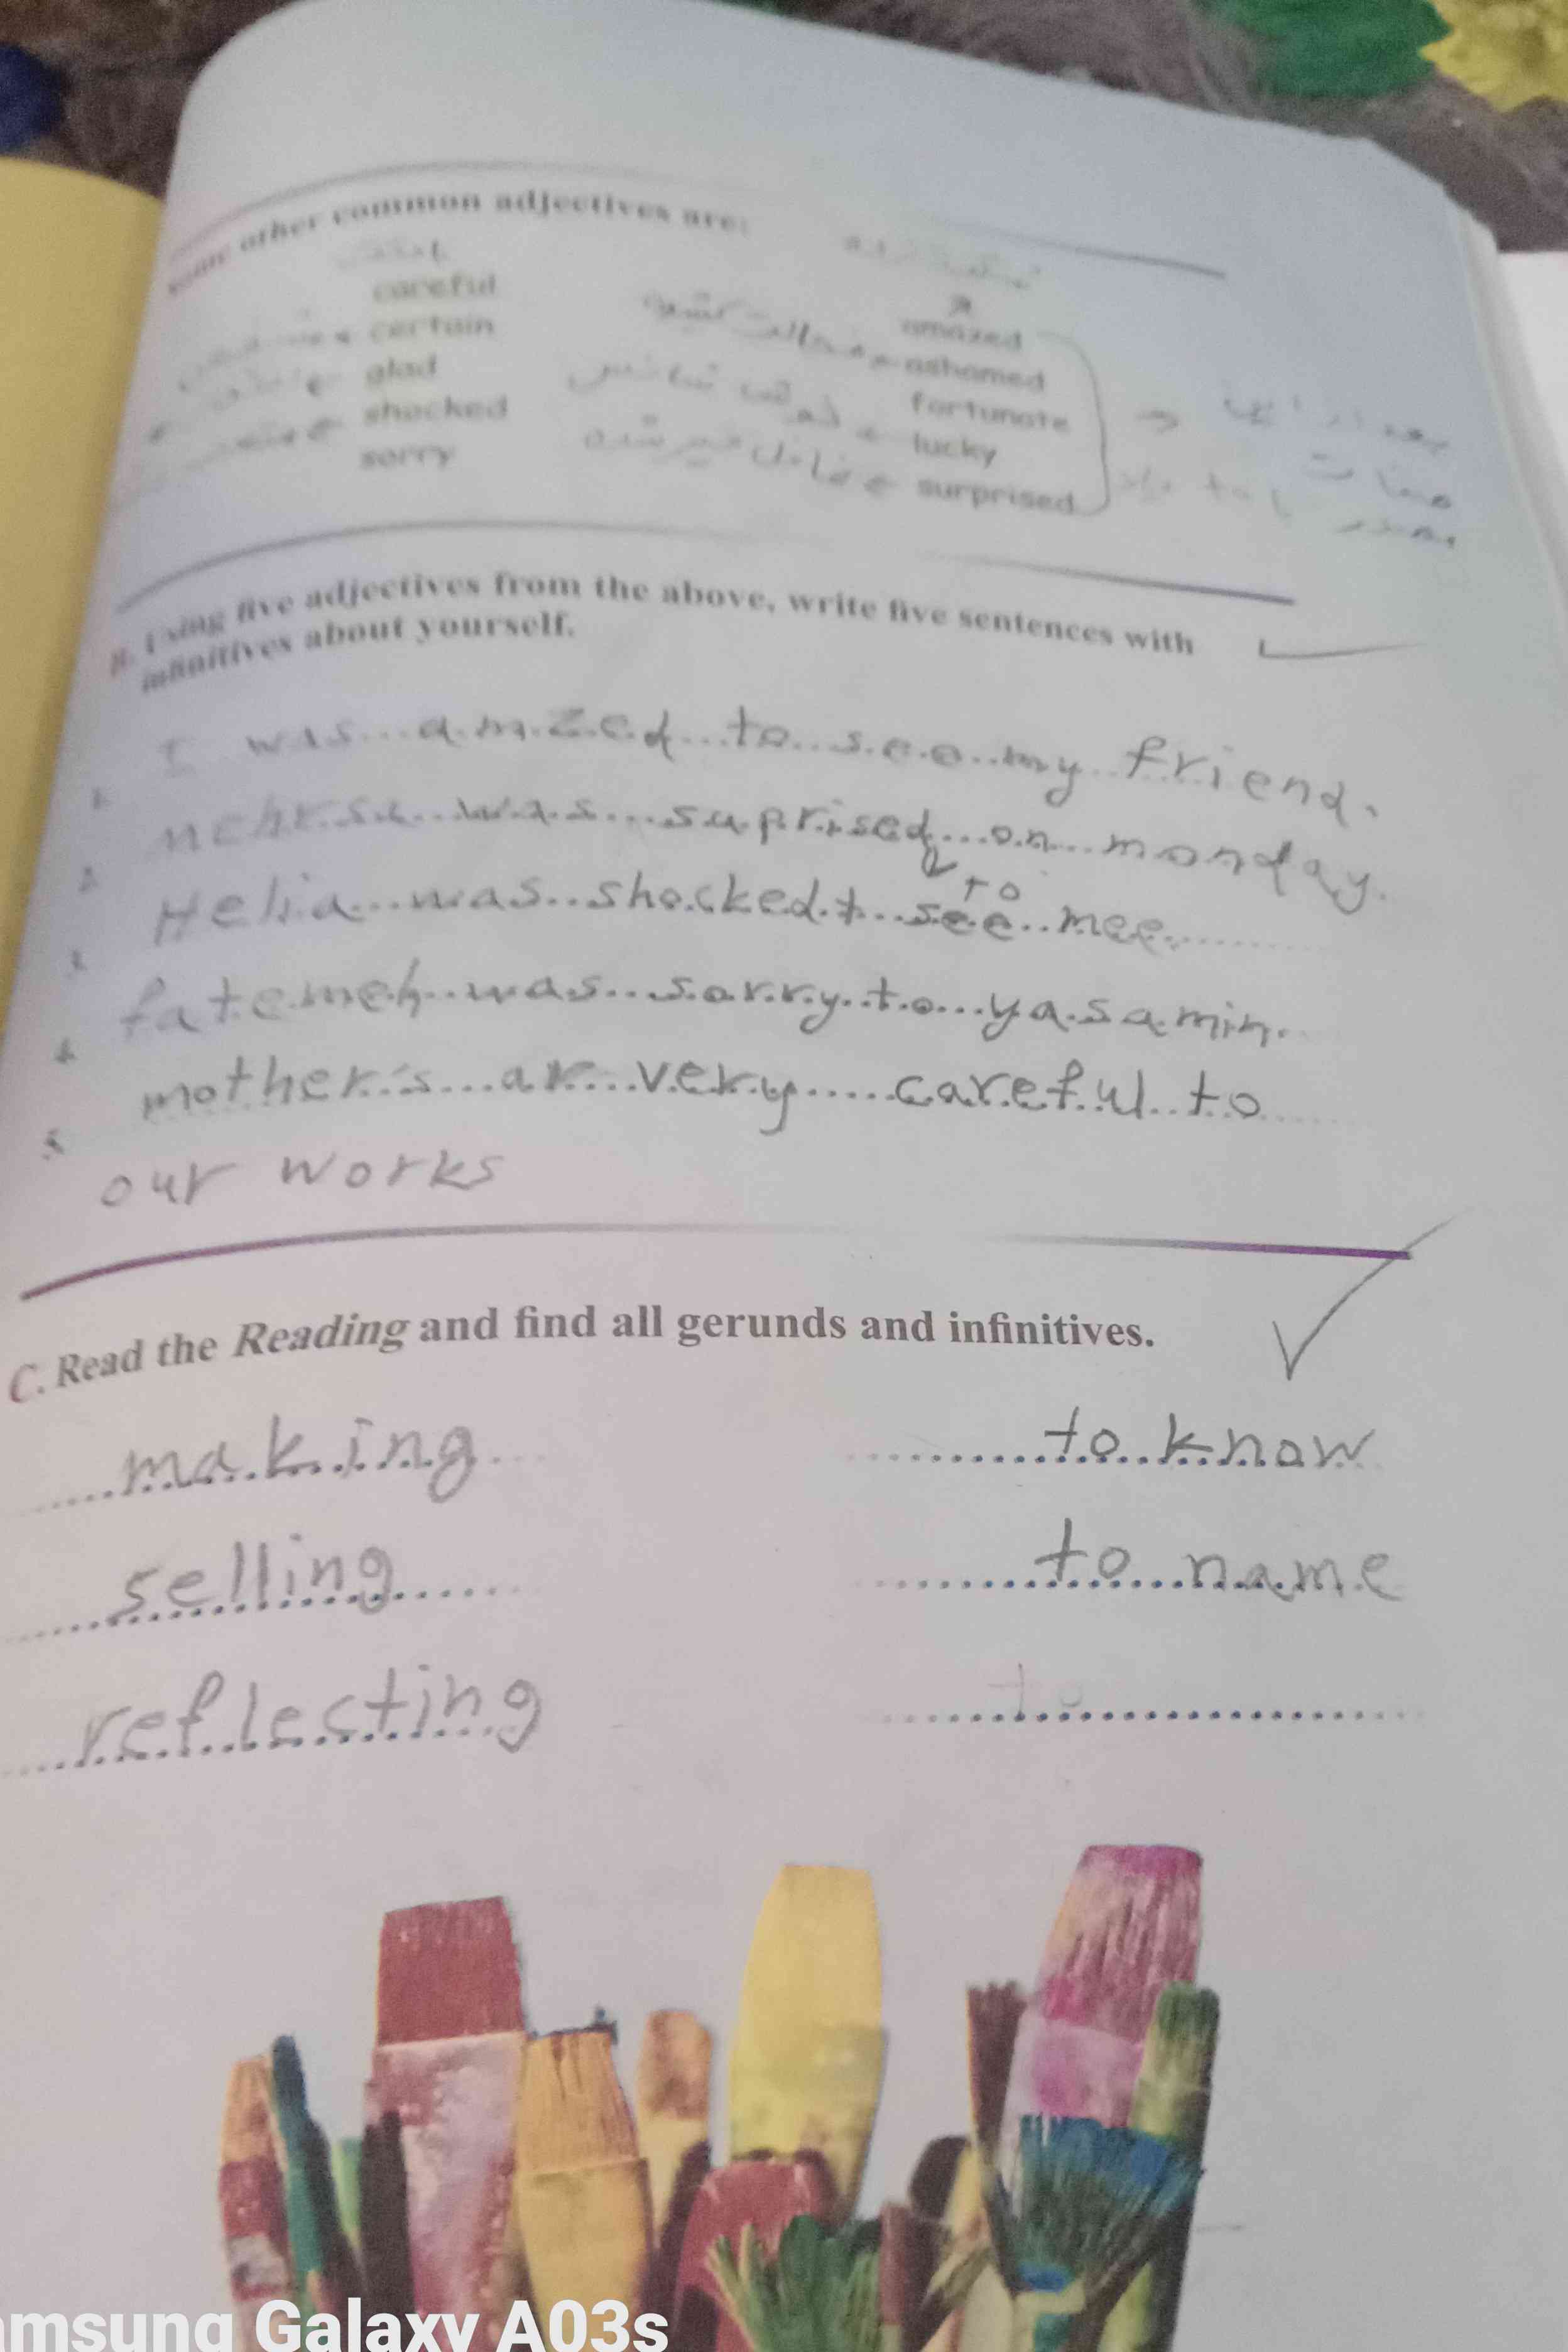 Some other common adjectives are:
careful
certain
glad
shocked
sorry
amazed
ashamed
fortunate
lucky
surprised
خجالت کشیده
خوش شانس
غافل گیر شده
بعد از این
صفات
مصدر با to
B. Using five adjectives from the above, write five sentences with
infinitives about yourself.
1. I was amzed to see my friend.
2. was suprised on monday.
to
3. Helia was shocked t see mee.
4. fatemeh was sorry to yasamin.
5. mother's ar very careful to
our works
C. Read the Reading and find all gerunds and infinitives.
making to know
selling to name
reflecting to
amsung Galaxy A03s